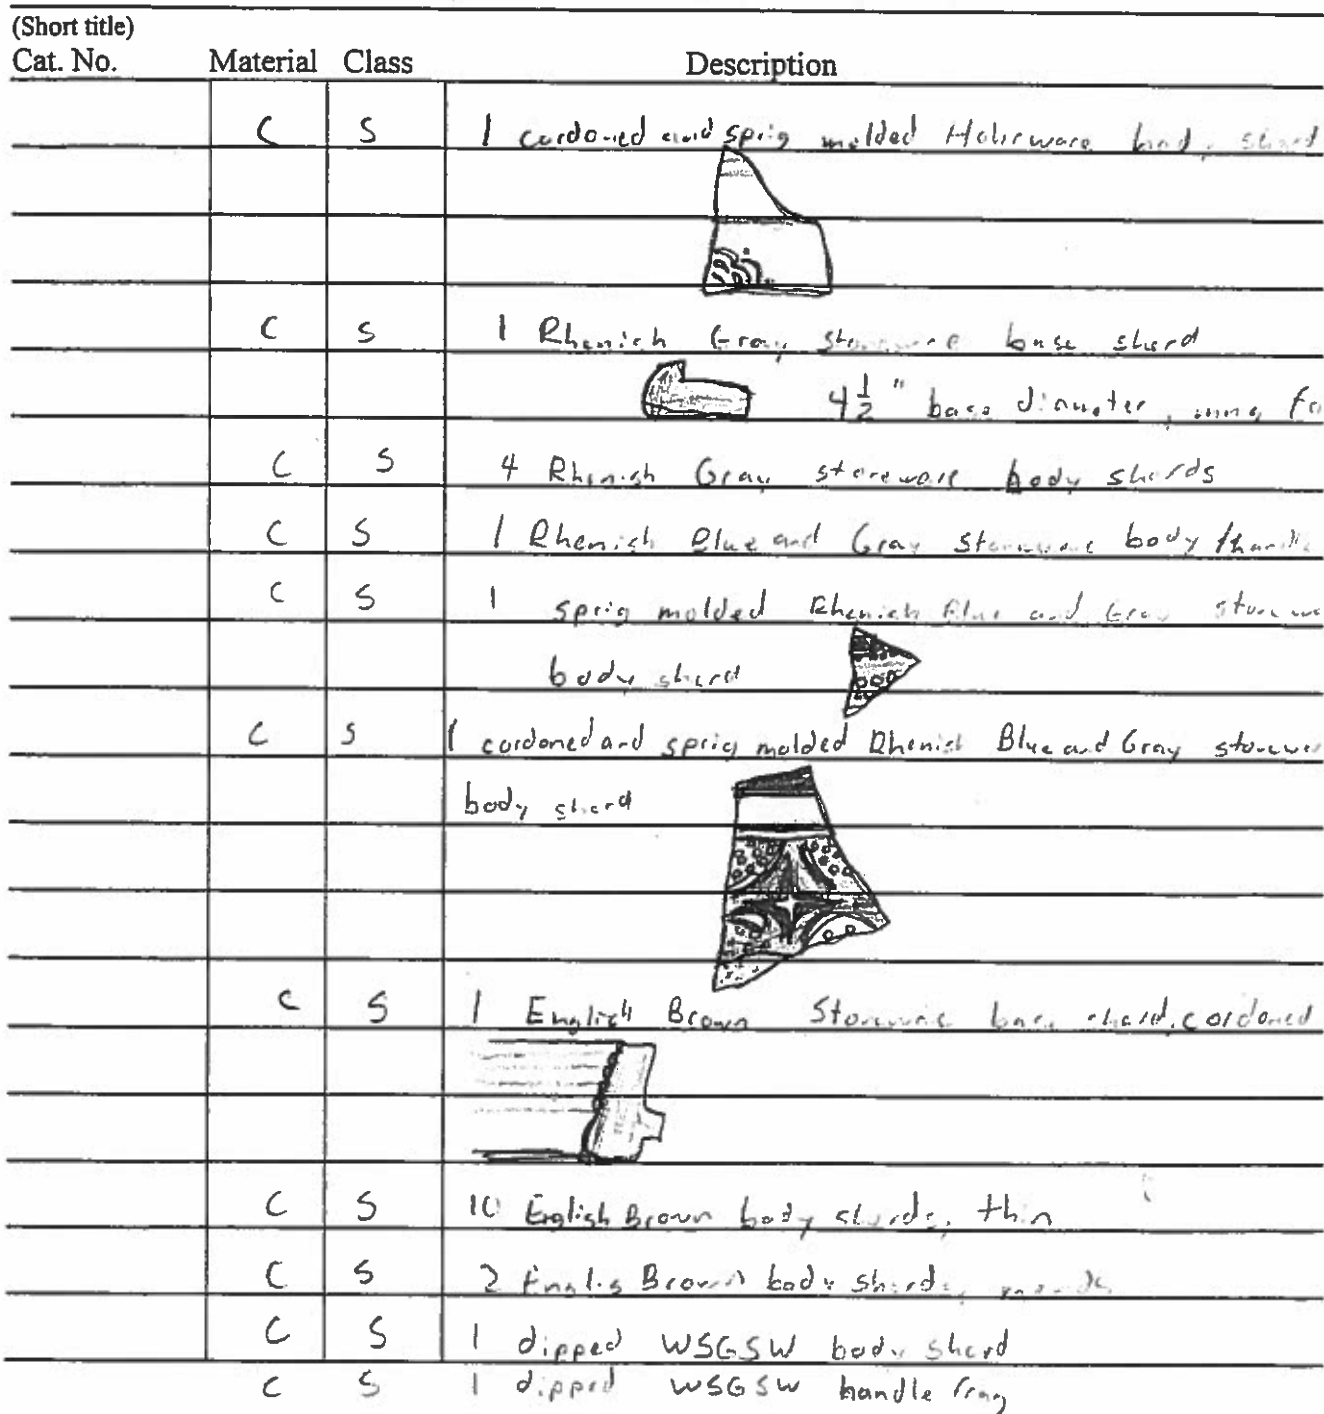 (Short title)
Cat. No. Material Class Description
C S 1 cordoned and sprig molded body shard
C S 1 Rhenish Gray stoneware base shard
4 1/2 " base diameter,
C S 4 Rhenish Gray stoneware body shards
C S 1 Rhenish Blue and Gray stoneware body/handle
C S 1 sprig molded Rhenish Blue and Gray stonewa
body shard
C S 1 cordoned and sprig molded Rhenish Blue and Gray stonewa
body shard
C S 1 English Brown Stoneware base shard, cordoned
C S 10 English Brown body shards, thin
C S 2 Englis Brown body shards,
C S 1 dipped WSGSW body shard
C S 1 dipped WSGSW handle frag